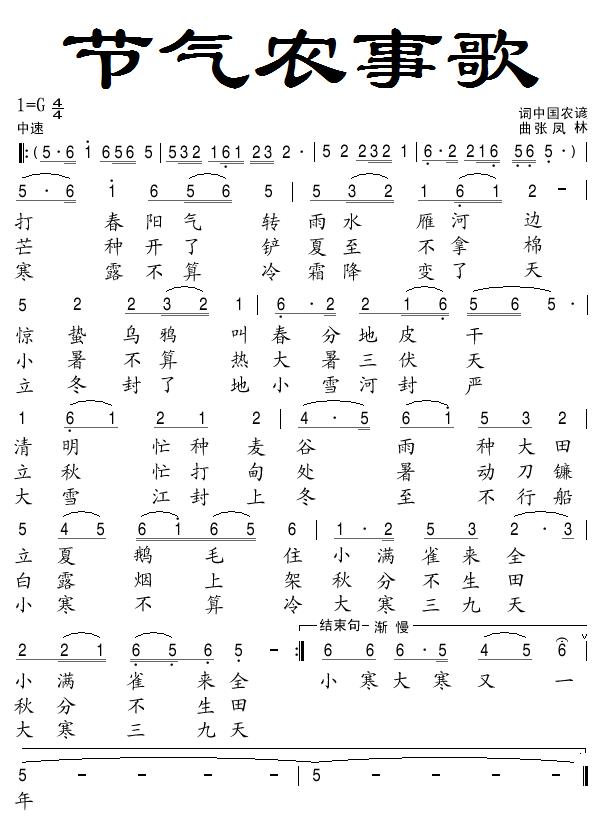 节气农事歌
1=G 4/4
中速
词中国农谚
曲张凤林
‖:(5·6 1 656 5 | 532 161 23 2· | 5 2 232 1 | 6·2 216 56 5·)|
5·6 1 6 5 6 5 | 5 3 2 1 6 1 2 - |
打春阳气转雨水雁河边
芒种开了铲夏至不拿棉
寒露不算冷霜降变了天
5 2 2 2 3 2 1 | 6·2 2 1 6 5 6 5 |
惊蛰乌鸦叫春分地皮干
小暑不算热大暑三伏天
立冬封了地小雪河封严
1 6 1 2 1 2 | 4·5 6 1 5 3 2 |
清明忙种麦谷雨种大田
立秋忙打甸处暑动刀镰
大雪江封上冬至不行船
5 4 5 6 1 6 5 6 | 1·2 5 3 2·3 |
立夏鹅毛住小满雀来全
白露烟上架秋分不生田
小寒不算冷大寒三九天
结束句 渐慢
2 2 1 6 5 6 5 - :‖ 6 6 6·5 4 5 6 |
小满雀来全 小寒大寒又一
秋分不生田
大寒三九天
5 - - - | 5 - - - ‖
年